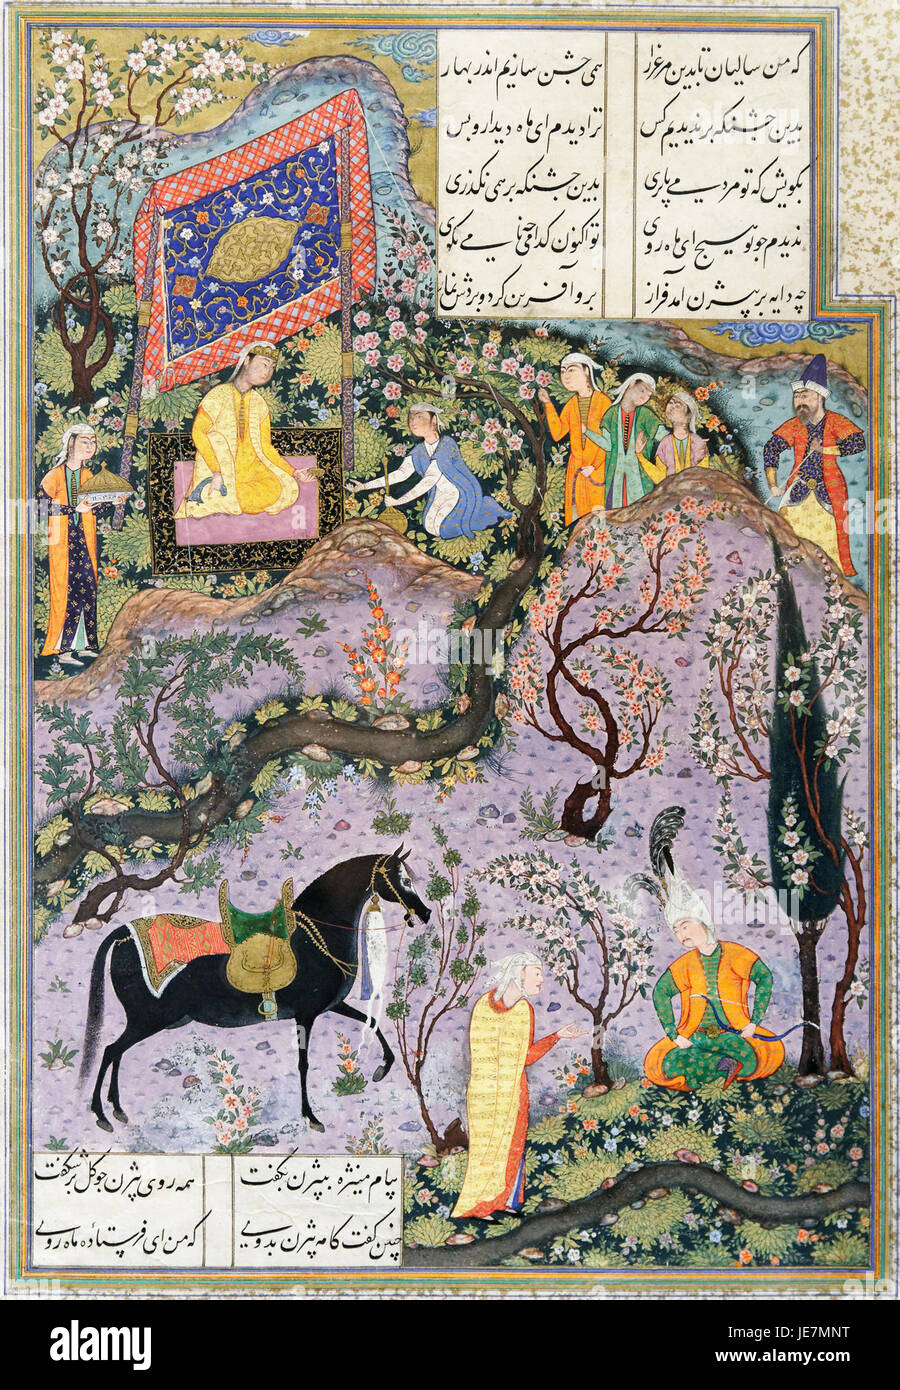 که من سالیان تا بدین مرغزار همی جشن سازیم اندر بهار
بدین جشنگه بر ندیدیم کس ترا دیدم ای ماه دیدار و بس
بگویش که تو مردمی یا پری بدین جشنگه بر همی نگذری
ندیدم چو تو هیچ ای ماه روی تو اکنون کدامی همی گوی
چو دایه بر بیژن آمد فراز برو آفرین کرد و بردش نماز
پیام منیژه به بیژن بگفت همه روی بیژن چو گل بر شکفت
چنین گفت بیژن بدوی که من ای فرستاده ماه روی
alamy
alamy stock photo
JE7MNT